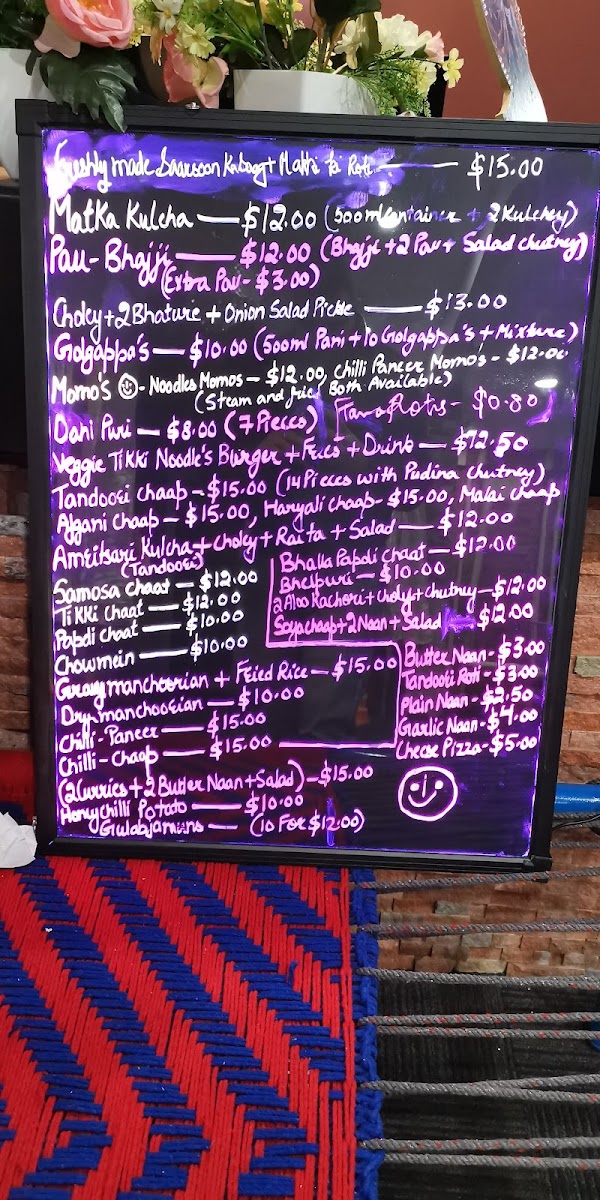 Freshly made Saarsoon Ka Saag + Makki ki Roti — $15.00
Matka Kulcha — $12.00 (500ml container + 2 Kulchey)
Pau-Bhajji — $12.00 (Bhajji + 2 Pau + Salad chutney)
(Extra Pau - $3.00)
Choley + 2 Bhature + Onion Salad Pickle — $13.00
Golgappa's — $10.00 (500ml Pani + 10 Golgappa's + Mixture)
Momo's - Noodles Momos - $12.00, Chilli Paneer Momos - $12.00
(Steam and fried Both Available)
Dahi Puri — $8.00 (7 Pieces)
Rotis - $0.80
Veggie Tikki Noodle's Burger + Fries + Drink — $12.50
Tandoori chaap - $15.00 (14 Pieces with Pudina Chutney)
Afgani chaap - $15.00, Haryali chaap - $15.00, Malai chaap
Amritsari Kulcha + choley + Raita + Salad — $12.00
(Tandoori)
Samosa chaat — $12.00
Tikki chaat — $12.00
Papdi chaat — $10.00
Chowmein — $10.00
Bhalla Papdi chaat — $12.00
Bhelpuri — $10.00
2 Aloo Kachori + choley + chutney — $12.00
Soya chaap + 2 Naan + Salad $12.00
Gravy manchoorian + Fried Rice — $15.00
Dry manchoorian — $10.00
Chilli-Paneer — $15.00
Chilli-Chaap — $15.00
Butter Naan - $3.00
Tandoori Roti - $3.00
Plain Naan - $2.50
Garlic Naan - $4.00
Cheese Pizza - $5.00
(2 Curries + 2 Butter Naan + Salad) - $15.00
Honey chilli Potato — $10.00
Gulabjamuns — (10 For $12.00)